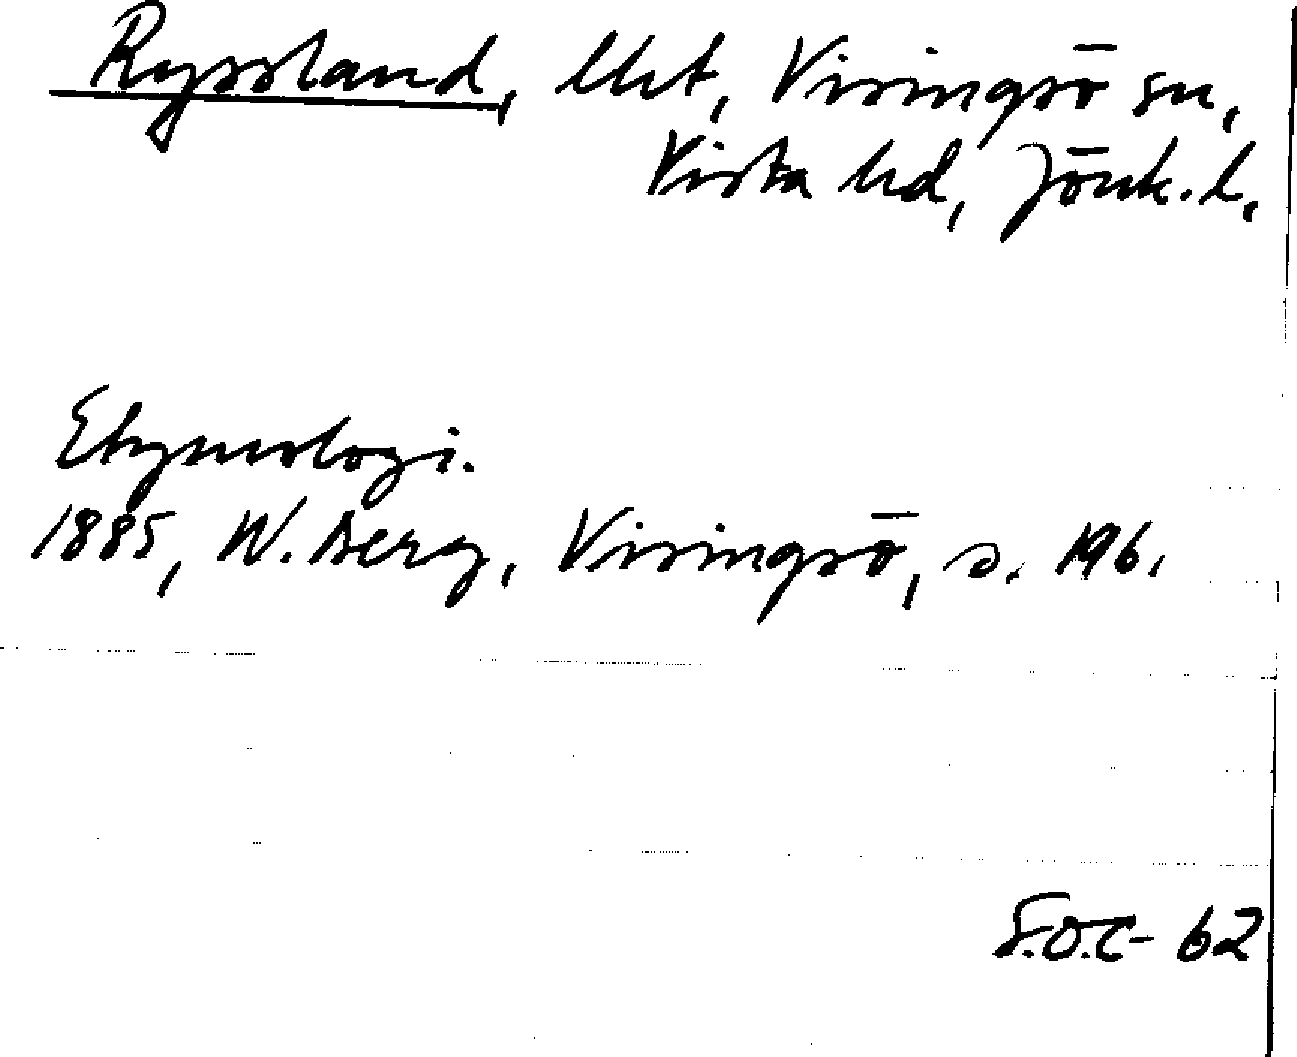 Ryssland, lht, Visingsö sn,
Vista hd, Jönk. l.
Etymologi.
1885, W. Berg, Visingsö, s. 196.
62